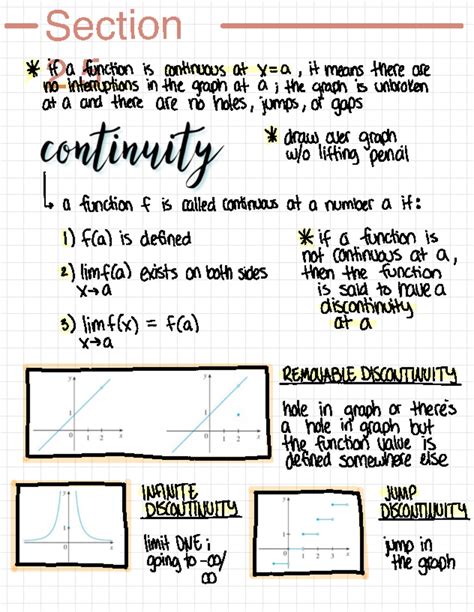 Section
2.5
* if a function is continuous at x=a, it means there are
no interruptions in the graph at a; the graph is unbroken
at a and there are no holes, jumps, or gaps
continuity
* draw over graph
w/o lifting pencil
↳ a function f is called continuous at a number a if:
1) f(a) is defined
2) lim f(a) exists on both sides
x→a
3) lim f(x) = f(a)
x→a
* if a function is
not continuous at a,
then the function
is said to have a
discontinuity
at a
REMOVABLE DISCONTINUITY
hole in graph or there's
a hole in graph but
the function value is
defined somewhere else
y
1
0 1 2 x
y
1
0 1 2 x
INFINITE
DISCONTINUITY
limit DNE;
going to -∞/
∞
y
1
0 x
JUMP
DISCONTINUITY
jump in
the graph
y
1
0 1 2 3 x